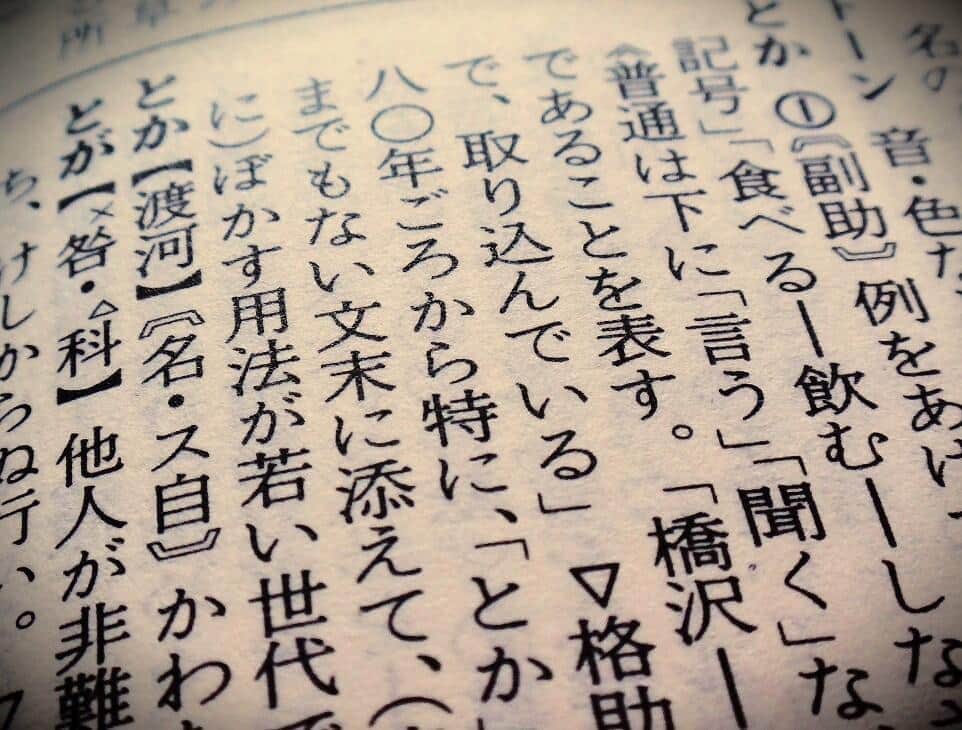 名
トーン 音・色
とか ①〘副助〙例をあげ
記号」「食べる―飲む―しな
《普通は下に「言う」「聞く」な
であることを表す。「橋沢―
で、取り込んでいる」 ▽格助
八〇年ごろから特に、「とか」
までもない文末に添えて、(
に)ぼかす用法が若い世代で
とか【渡河】〘名・ス自〙かわ
とが【×咎・△科】他人が非難
ち、けしからぬ行い。
所